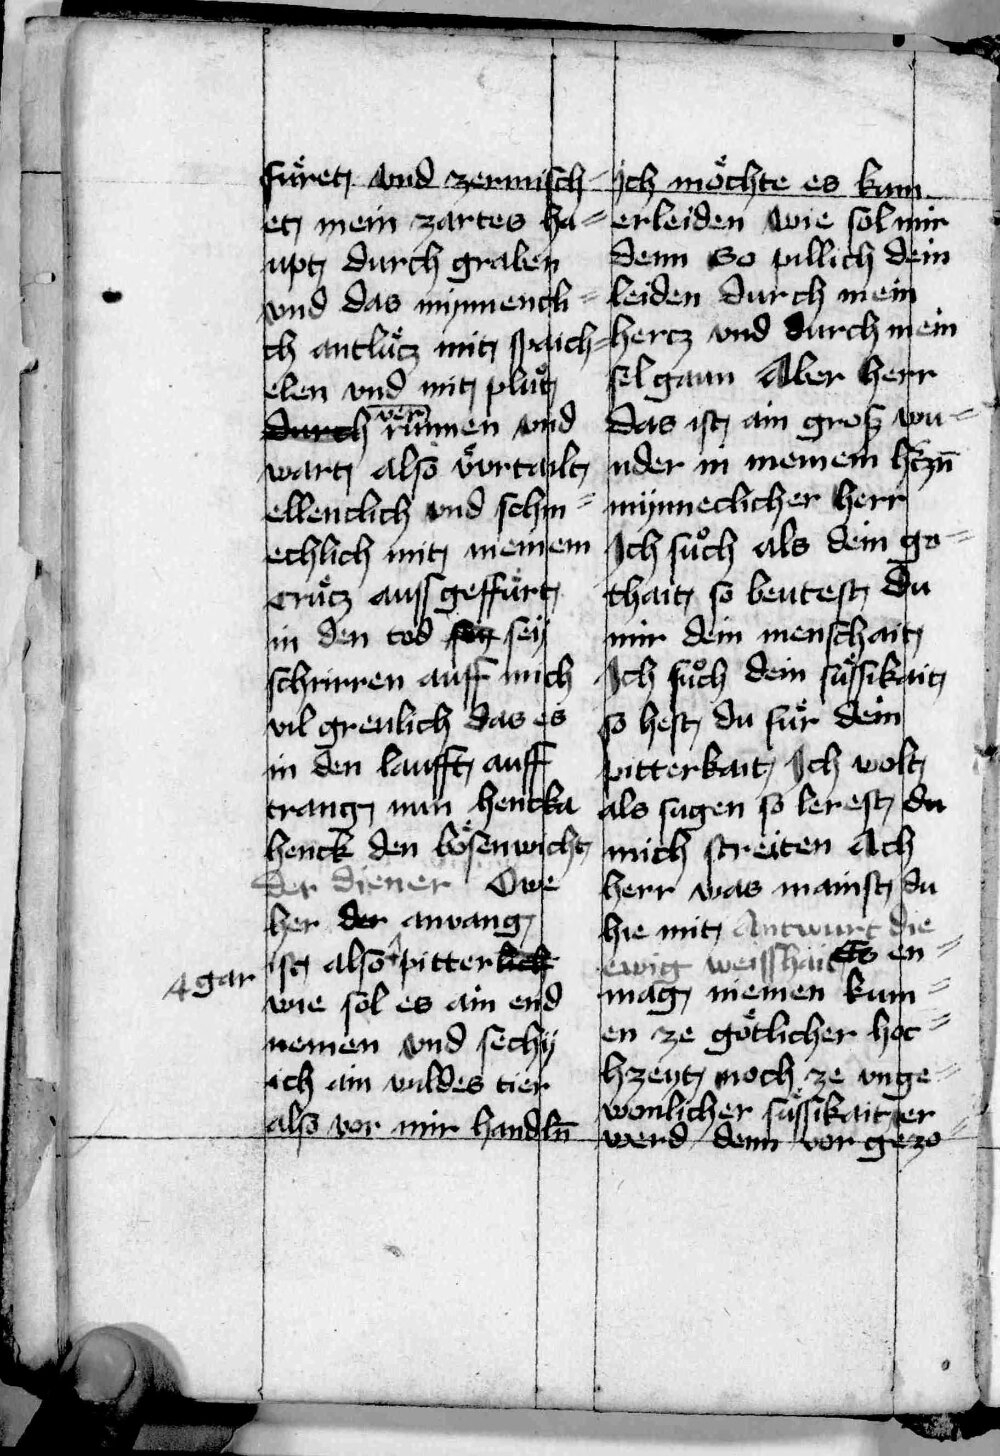 fu̎ret vnd zermisch-
et mein zartes ha=
upt durch graben
vnd das mynnencli=
ch antlu̎cz mit spaich=
elen vnd mit plu̎t
durch ver rünnen vnd
wart also vo̎rtailt
ellenclich vnd schm=
echlich mit meinem
cru̎cz auss geffu̎rt
in den tod sey
schrirren auff mich
vil greulich das es
in den laufft auff
trang nun hencka
henck den bo̎senwicht
der diener Owe
her der anvang
ist also pitterlich
gar
wie sol es ain end
nemen vnd sechy
ich ain vuldes tier
also vor mir handln̄
Ich mo̎chte es kum
erleiden wie sol mir
denn So pillich dein
leiden durch mein
hercz vnd durch mein
sel gaun Aber herr
das ist ain grosz wu=
nder in meinem hczn̄
mynneclicher herr
Ich suͦch als dein go=
thait so beutest du
mir dein menschait
Ich suͦch dein su̎ssikait
so hest du fu̎r dein
pitterkait Ich wolt
als sugen so lerest du
mich streiten Ach
herr was mainst du
hie mit Antwurt die
ewig weisshait Es en=
mag niemen kum=
en ze go̎tlicher hoc=
hzeyt noch ze vnge=
wonlicher su̎ssikait er
werd denn vor gezo=